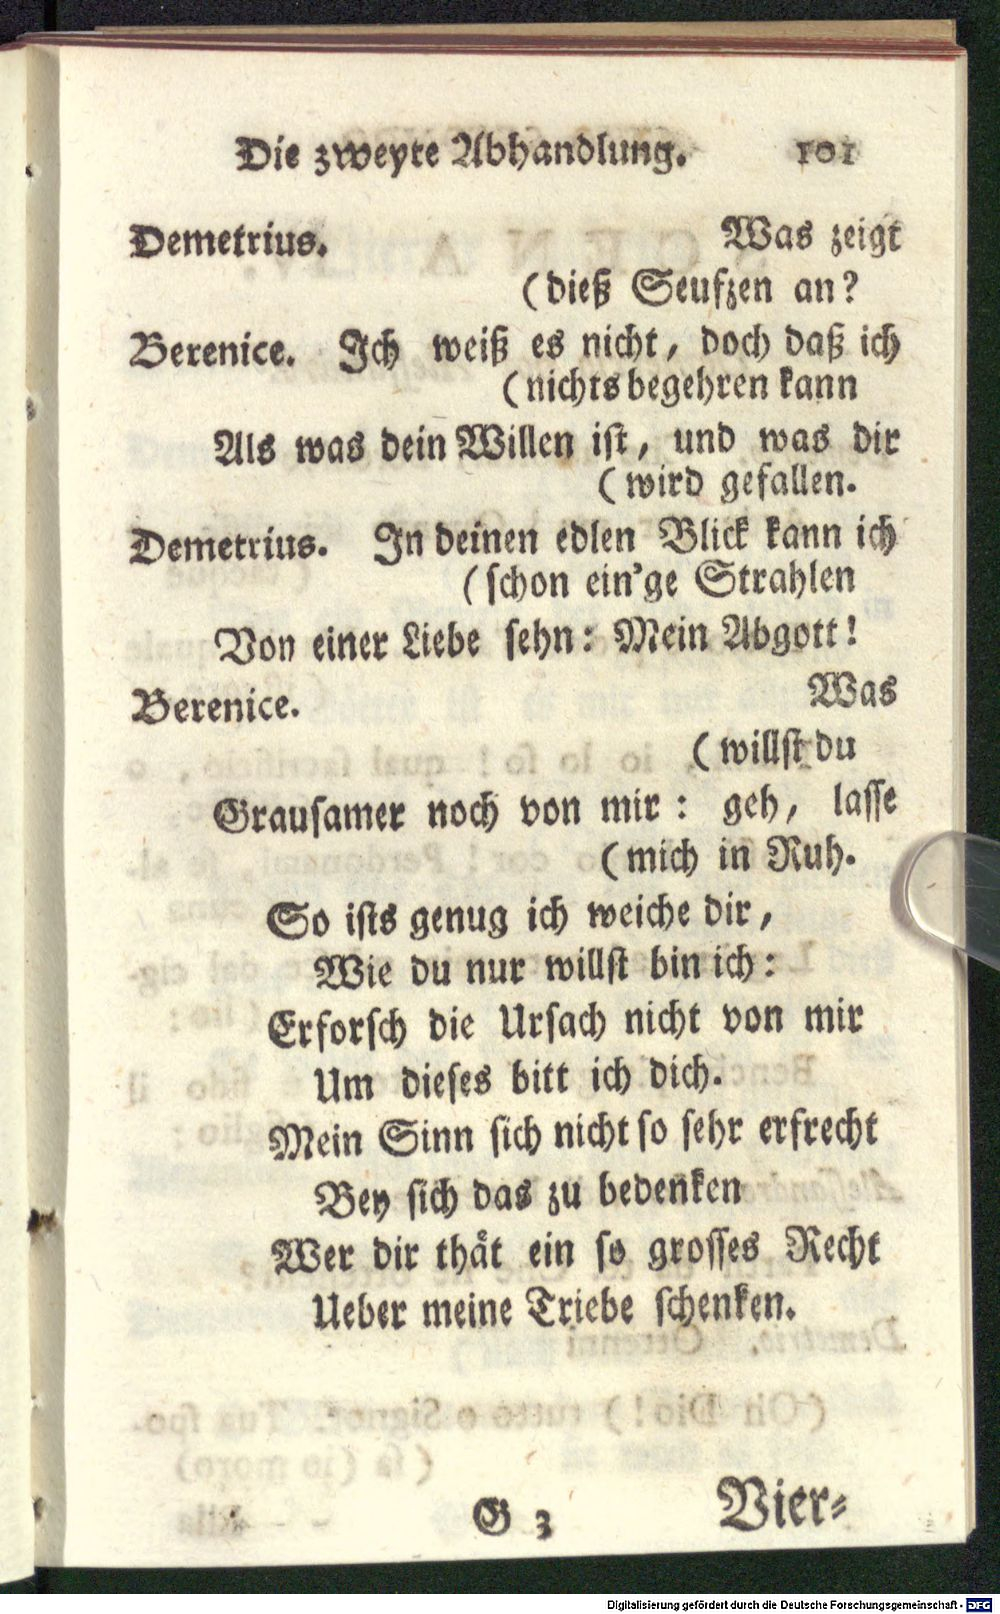 Die zweyte Abhandlung. 101
Demetrius. Was zeigt
(dieß Seufzen an?
Berenice. Ich weiß es nicht, doch daß ich
(nichts begehren kann
Als was dein Willen ist, und was dir
(wird gefallen.
Demetrius. In deinen edlen Blick kann ich
(schon ein'ge Strahlen
Von einer Liebe sehn: Mein Abgott!
Berenice. Was
(willst du
Grausamer noch von mir: geh, lasse
(mich in Ruh.
So ists genug ich weiche dir,
Wie du nur willst bin ich:
Erforsch die Ursach nicht von mir
Um dieses bitt ich dich.
Mein Sinn sich nicht so sehr erfrecht
Bey sich das zu bedenken
Wer dir thät ein so grosses Recht
Ueber meine Triebe schenken.
G 3 Vier-
Digitalisierung gefördert durch die Deutsche Forschungsgemeinschaft - DFG